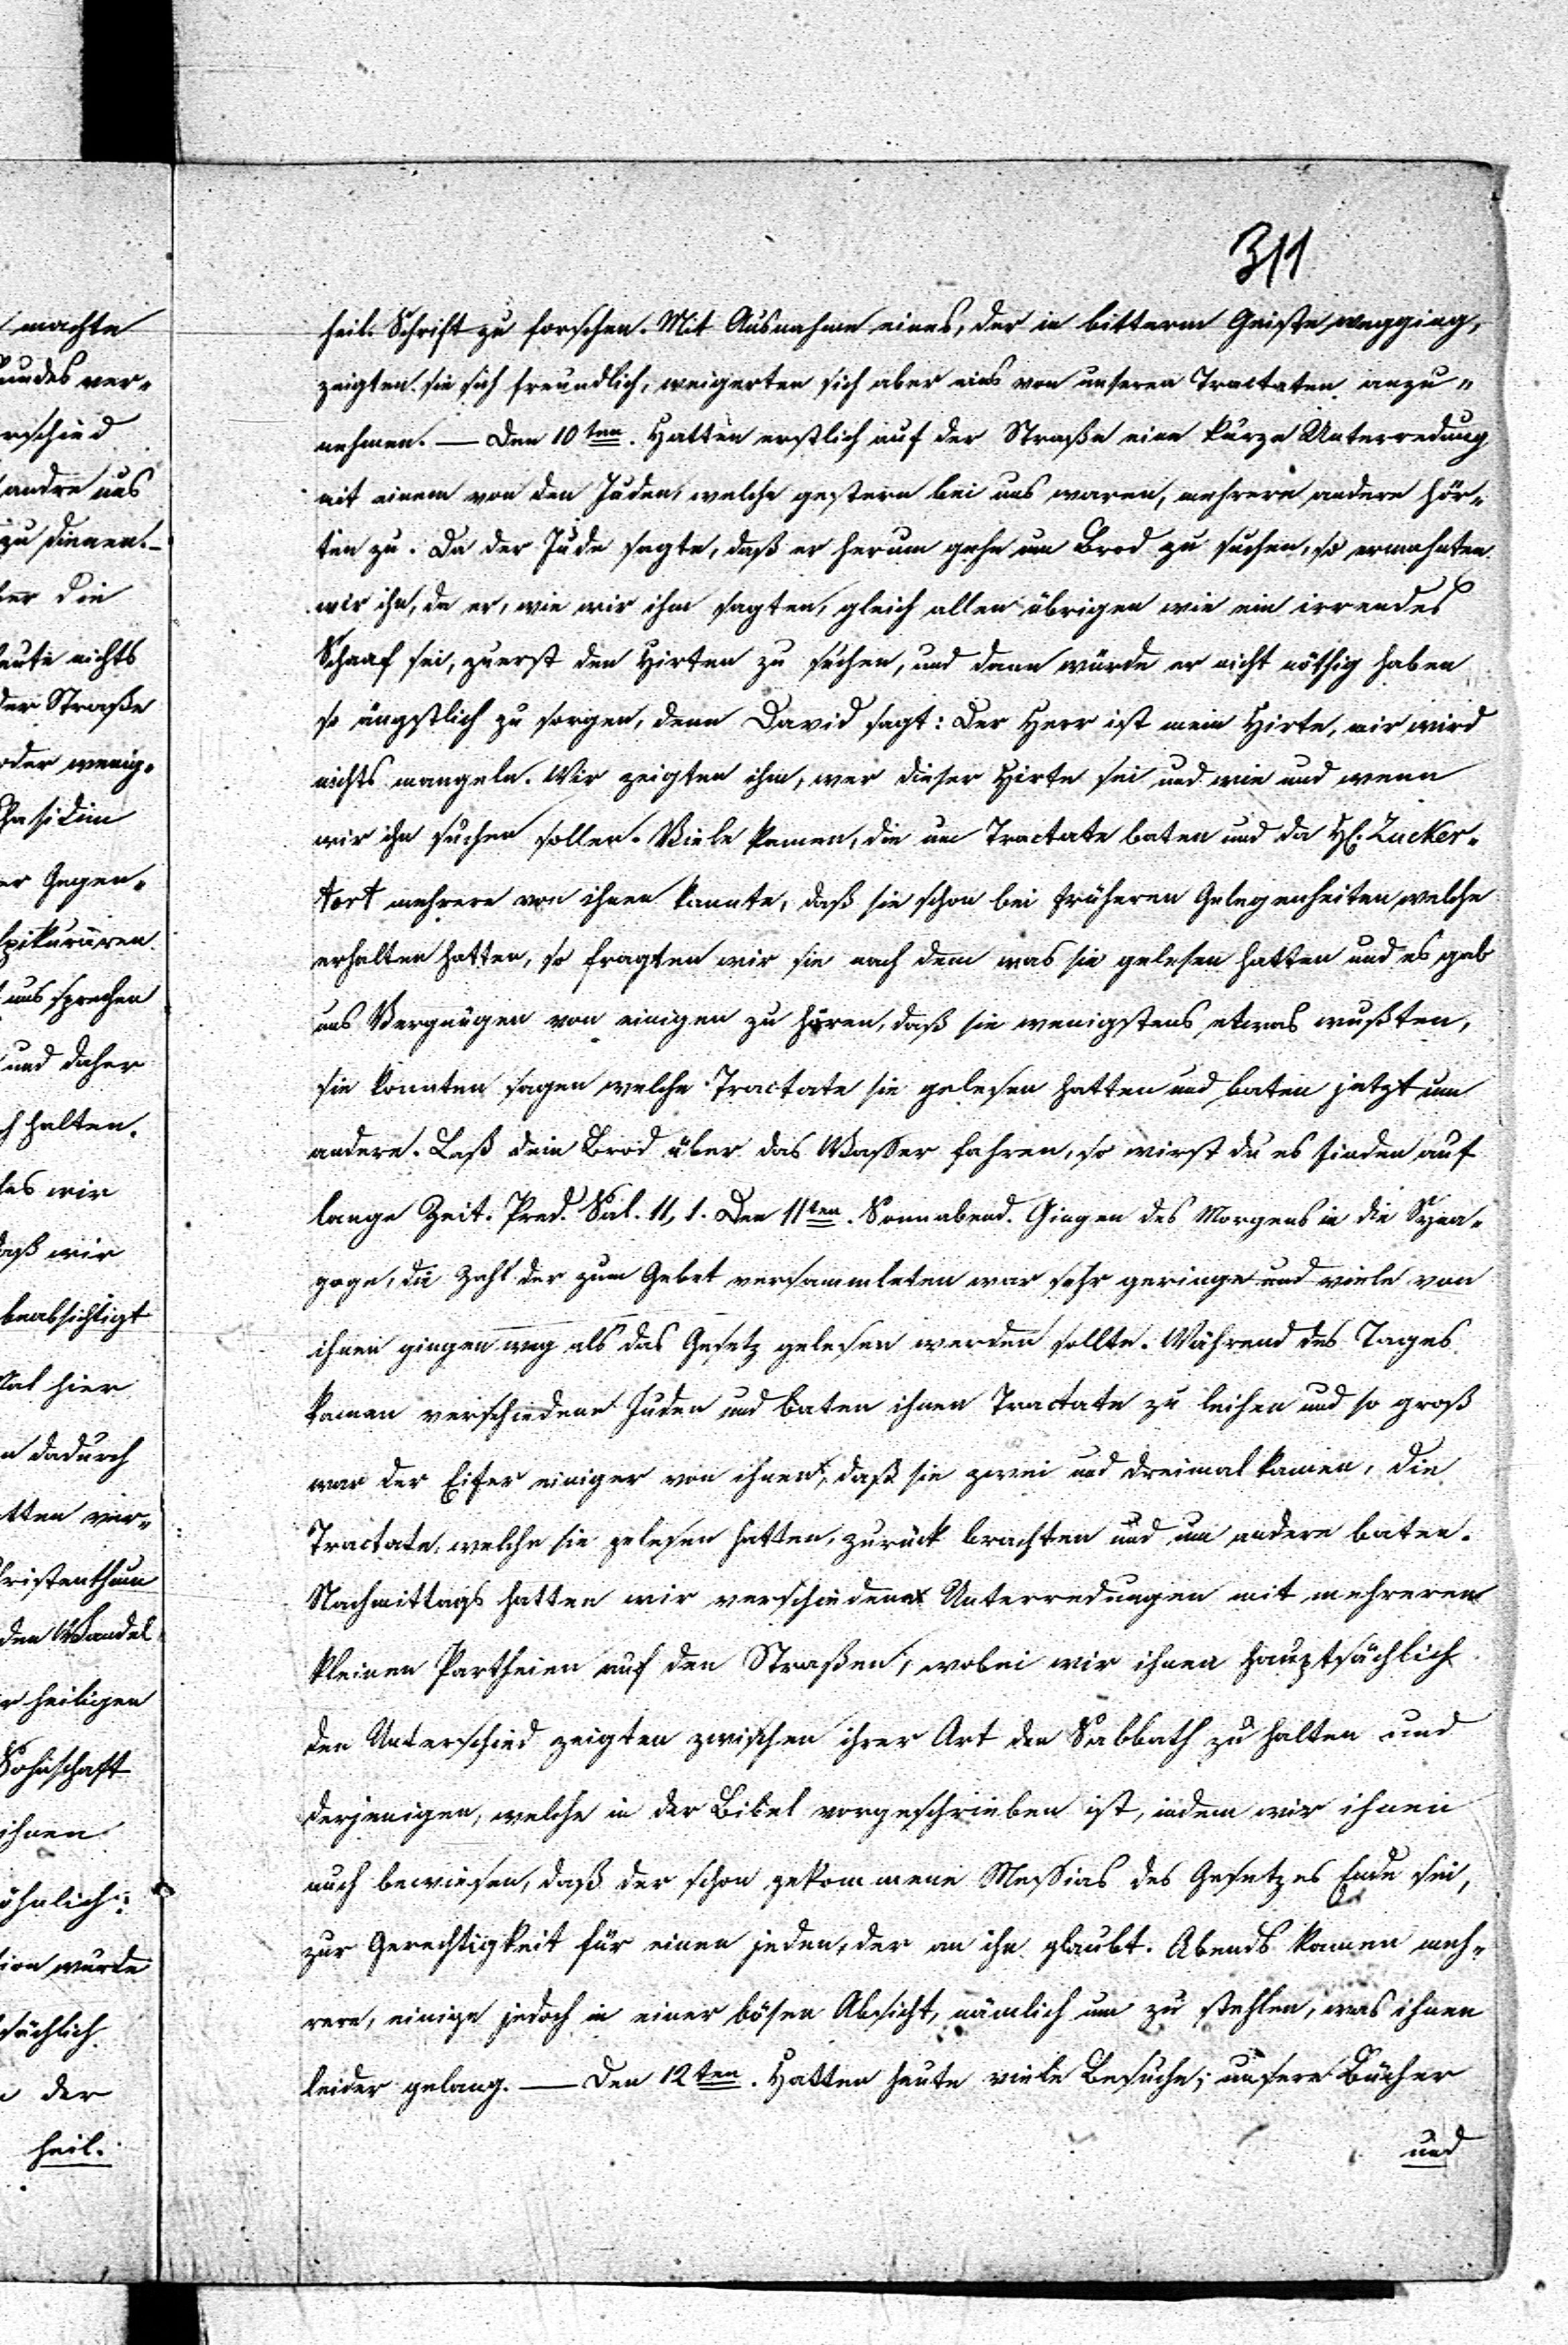 311
heil. Schrift zu forschen. Mit Ausnahme eines, der in bitterm Geiste wegging,
zeigten sie sich freundlich, weigerten sich aber eins von unseren Tractaten anzu-
nehmen. — Den 10ten. Hatten erstlich auf der Straße eine kurze Unterredung
mit einem von den Juden, welche gestern bei uns waren, mehrere andere hör-
ten zu. Da der Jude sagte, daß er herum gehe um Brod zu suchen, so ermahnten
wir ihn, da er, wie wir ihm sagten, gleich allen übrigen wie ein irrendes
Schaaf sei, zuerst den Hirten zu suchen, und dann würde er nicht nöthig haben
so ängstlich zu sorgen, denn David sagt: Der Herr ist mein Hirte, mir wird
nichts mangeln. Wir zeigten ihm, wer dieser Hirte sei und wie und wenn
wir ihn suchen sollen. Viele kamen, die um Tractate baten und da H. Zucker-
tort mehrere von ihnen kannte, daß sie schon bei früheren Gelegenheiten welche
erhalten hatten, so fragten wir sie nach dem was sie gelesen hatten und es gab
uns Vergnügen von einigen zu hören, daß sie wenigstens etwas wußten,
sie konnten sagen welche Tractate sie gelesen hatten und baten jetzt um
andere. Laß dein Brod über das Wasser fahren, so wirst du es finden auf
lange Zeit. Pred. Sal. 11, 1. Den 11ten. Sonnabend. Gingen des Morgens in die Syna-
goge, die Zahl der zum Gebet versammleten war sehr geringe und viele von
ihnen gingen weg als das Gesetz gelesen werden sollte. Während des Tages
kamen verschiedene Juden und baten ihnen Tractate zu leihen und so groß
war der Eifer einiger von ihnen, daß sie zwei und dreimal kamen, die
Tractate, welche sie gelesen hatten, zurück brachten und um andere baten.
Nachmittags hatten wir verschiedene Unterredungen mit mehreren
kleinen Partheien auf den Straßen, wobei wir ihnen hauptsächlich
den Unterschied zeigten zwischen ihrer Art den Sabbath zu halten und
derjenigen, welche in der Bibel vorgeschrieben ist, indem wir ihnen
auch bewiesen, daß der schon gekommene Messias des Gesetzes Ende sei,
zur Gerechtigkeit für einen jeden, der an ihn glaubt. Abends kamen meh-
rere, einige jedoch in einer bösen Absicht, nämlich um zu stehlen, was ihnen
leider gelang. — Den 12ten. Hatten heute viele Besuche; unsere Bücher
und
machte
undes ver-
rschied
andre uns
zu dienen. —
er die
eute nichts
der Straße
oder wenig-
Chasidim
er Gegen-
pikuräern
uns sprechen
und daher
halten.
es wir
daß wir
beabsichtigt
Mal hier
n dadurch
tten ver-
hristenthum
den Wandel
r heiligen
Sohnschaft
ihnen
öhnlich:
ion wurde
sächlich
der
heil.